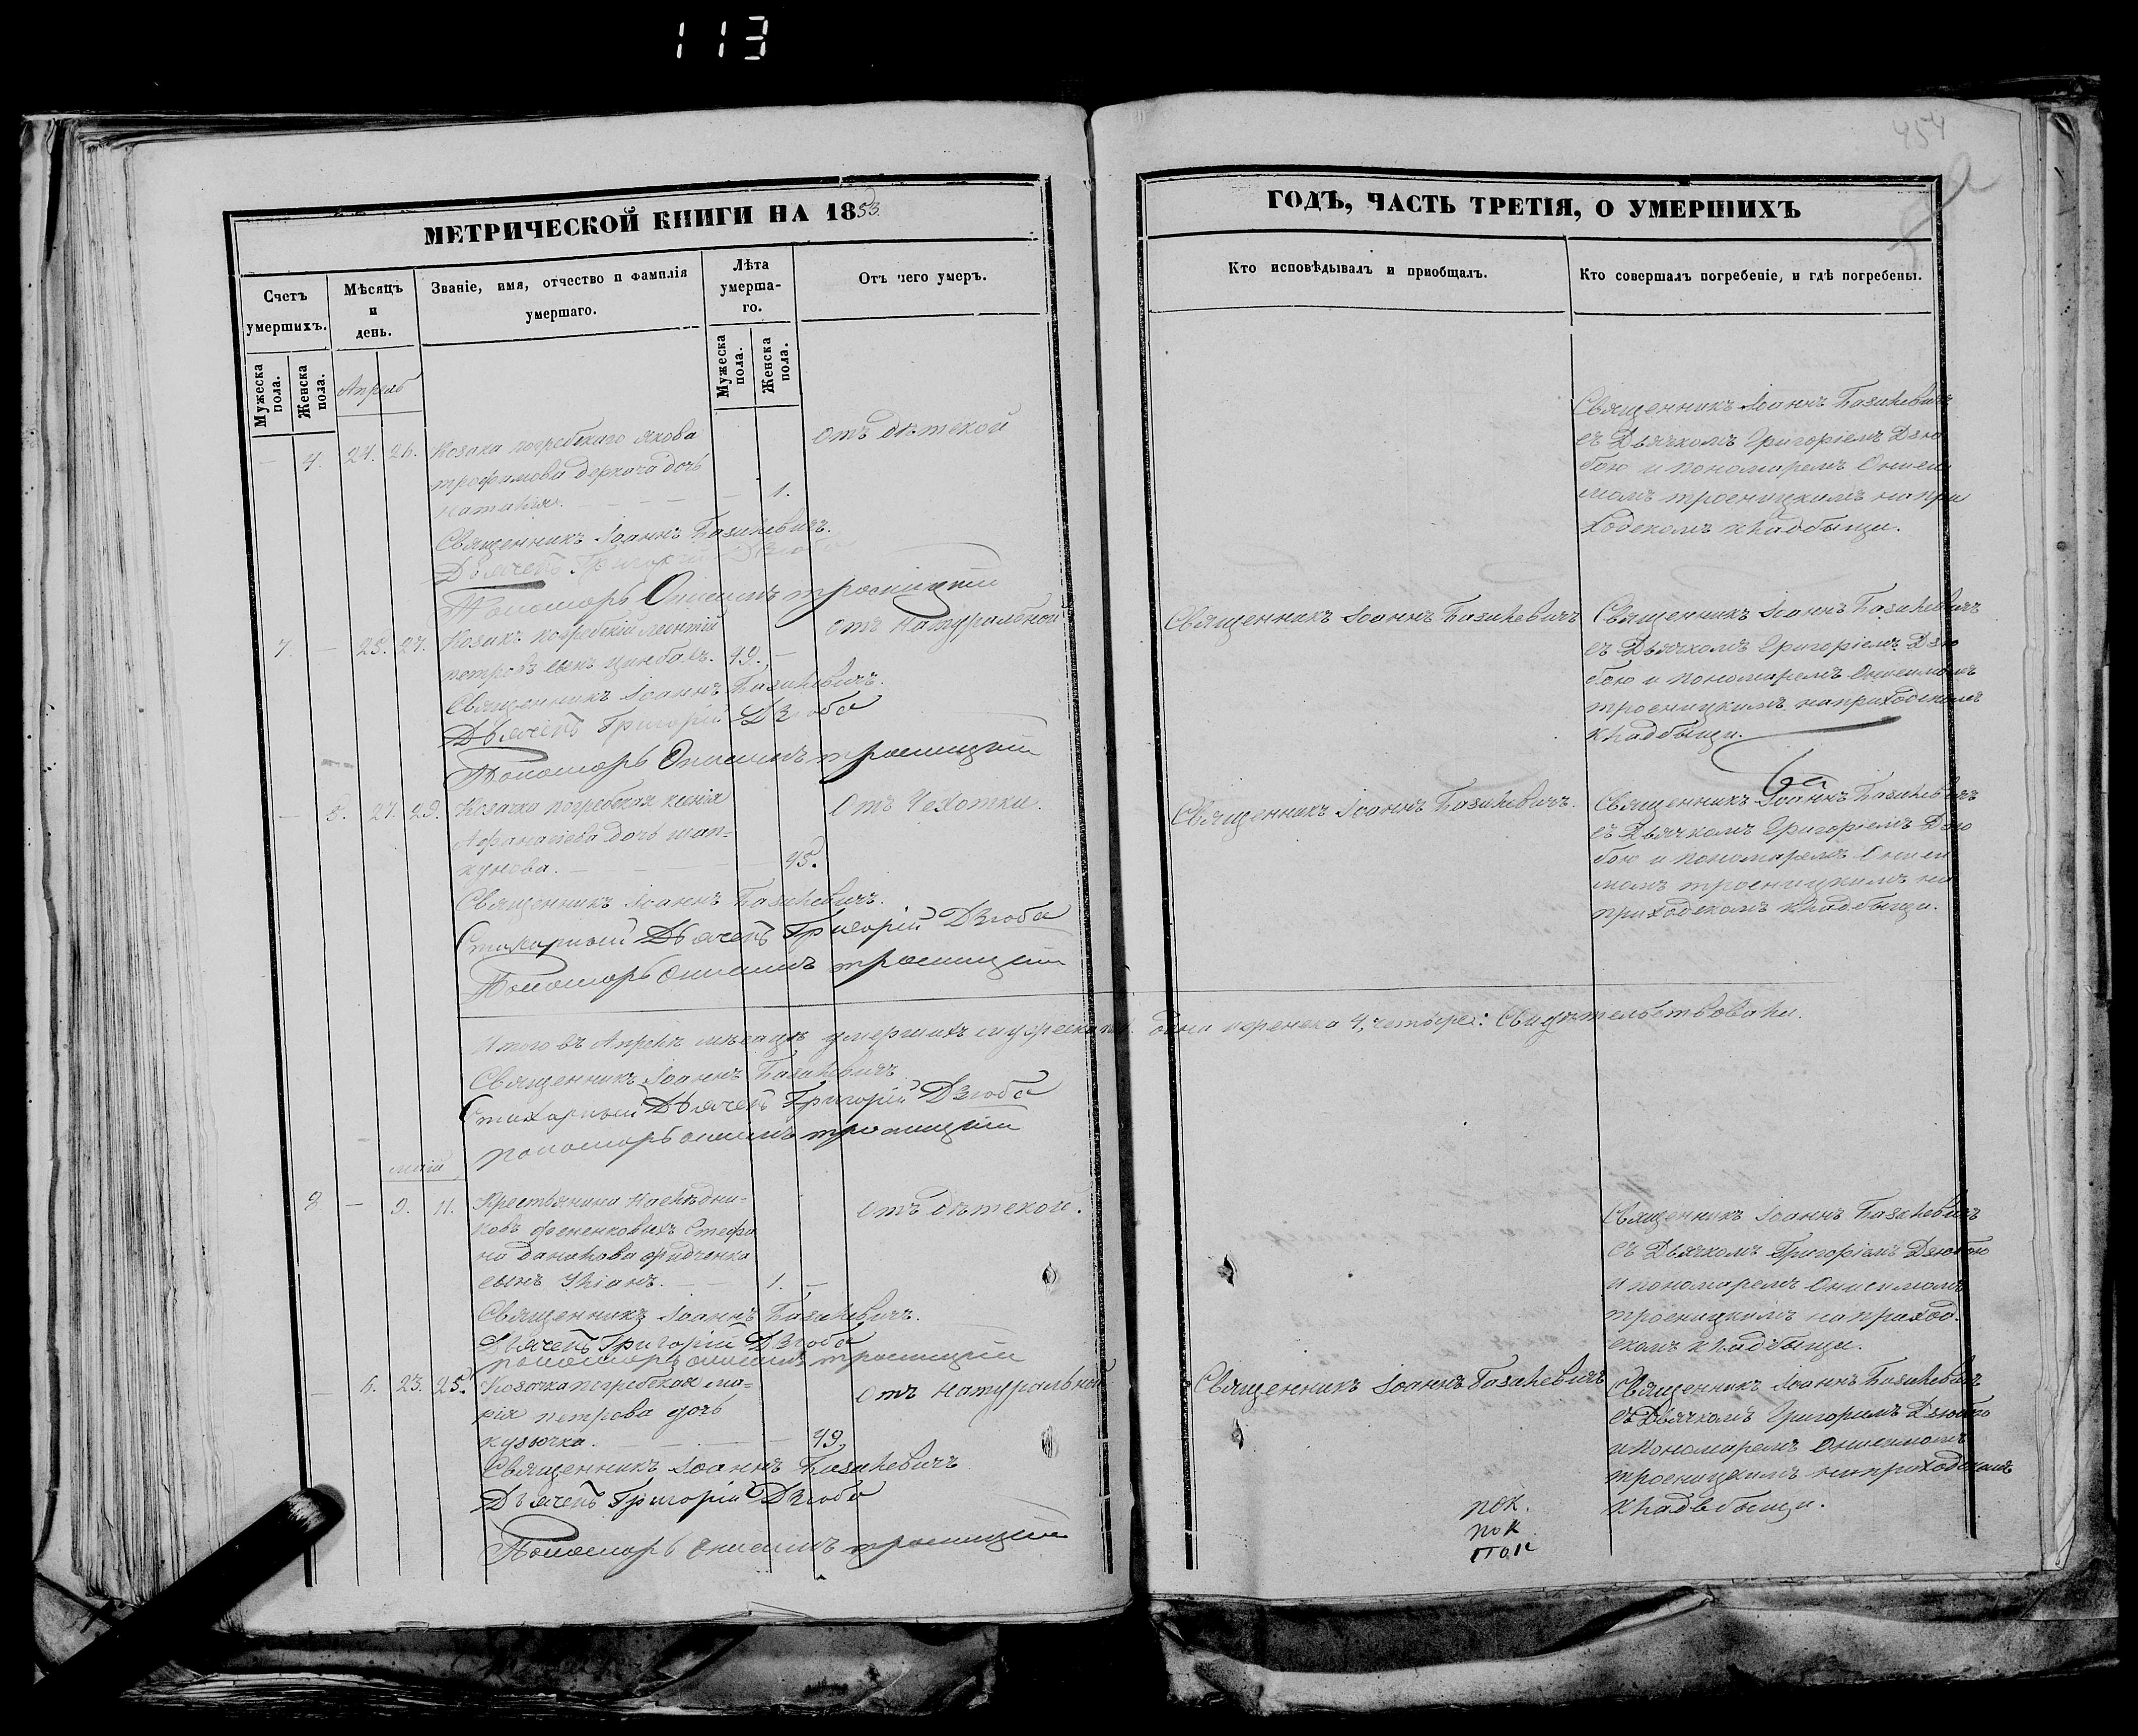 113
454
МЕТРИЧЕСКОЙ КНИГИ НА 1853
Счетъ умершихъ.
Мужеска пола.
Женска пола.
Мѣсяцъ и день.
Званіе, имя, отчество и фамилія умершаго.
Лѣта умерша-го.
Мужеска пола.
Женска пола.
Отъ чего умеръ.
Апрель
— 4. 24. 26. Козака погребскаго Якова отъ дѣтской
трофимова деркача дочь
наталія. — — — 1.
Священникъ Іоаннъ Базилевичъ.
Дьячекъ Григорій Дзюба
Пономарь Онисимъ троицкій
7. — 25. 27. Козакъ погребскій леонтій отъ натуральной
петровъ сынъ цимбалъ. 49. —
Священникъ Іоаннъ Базилевичъ.
Дьячекъ Григорій Дзюба
Пономарь Онисимъ троицкій
— 5. 27. 29. Козачка погребская ксенія отъ Чехотки.
Афанасіева дочь шап-
кунова. — — — 45.
Священникъ Іоаннъ Базилевичъ.
Стихарный Дьячекъ Григорій Дзюба
Пономарь Онисимъ троицкій
Итого въ Апрелѣ мѣсяцѣ умершихъ мужеска
Священникъ Іоаннъ Базилевичъ
Стихарный Дьячекъ Григорій Дзюба
пономарь онисимъ троицкій
маій
8. — 9. 11. Крестьянина Наслѣдни- отъ дѣтской.
ковъ Стефа
на данилова
сынъ Уліанъ. — — 1. —
Священникъ Іоаннъ Базилевичъ.
Дьячекъ Григорій Дзюба
пономарь онисимъ троицкій
— 6. 23. 25. Козачка погребская ма- отъ натуральной
рія петрова дочь
кузючка. — — — 49.
Священникъ Іоаннъ Базилевичъ
Дьячекъ Григорій Дзюба
Пономарь Онисимъ троицкій
ГОДЪ, ЧАСТЬ ТРЕТІЯ, О УМЕРШИХЪ
Кто исповѣдывалъ и приобщалъ.
Кто совершалъ погребеніе, и гдѣ погребены.
Священникъ Іоаннъ Базилевичъ
съ Дьячкомъ Григоріемъ Дзю
бою и пономаремъ Ониси
момъ троицкимъ на при
ходскомъ кладбыщи.
Священникъ Іоаннъ Базилевичъ Священникъ Іоаннъ Базилевичъ
съ Дьячкомъ Григоріемъ Дзю
бою и пономаремъ Онисимомъ
троицкимъ на приходскомъ
кладбыщи.
Священникъ Іоаннъ Базилевичъ. Священникъ Іоаннъ Базилевичъ
съ Дьячкомъ Григоріемъ Дзю
бою и пономаремъ Ониси
момъ троицкимъ на
приходскомъ кладбыщи.
одна и женска 4, четыре: Свидѣтельствовали.
Священникъ Іоаннъ Базилевичъ
съ Дьячкомъ Григоріемъ Дзюбою
и пономаремъ Онисимомъ
троицкимъ на приход
скомъ кладбыщи.
Священникъ Іоаннъ Базилевичъ Священникъ Іоаннъ Базилевичъ
съ Дьячкомъ Григоріемъ Дзюбою
и пономаремъ Онисимомъ
троицкимъ на приходскомъ
кладбыщи.
пок.
пок
пок